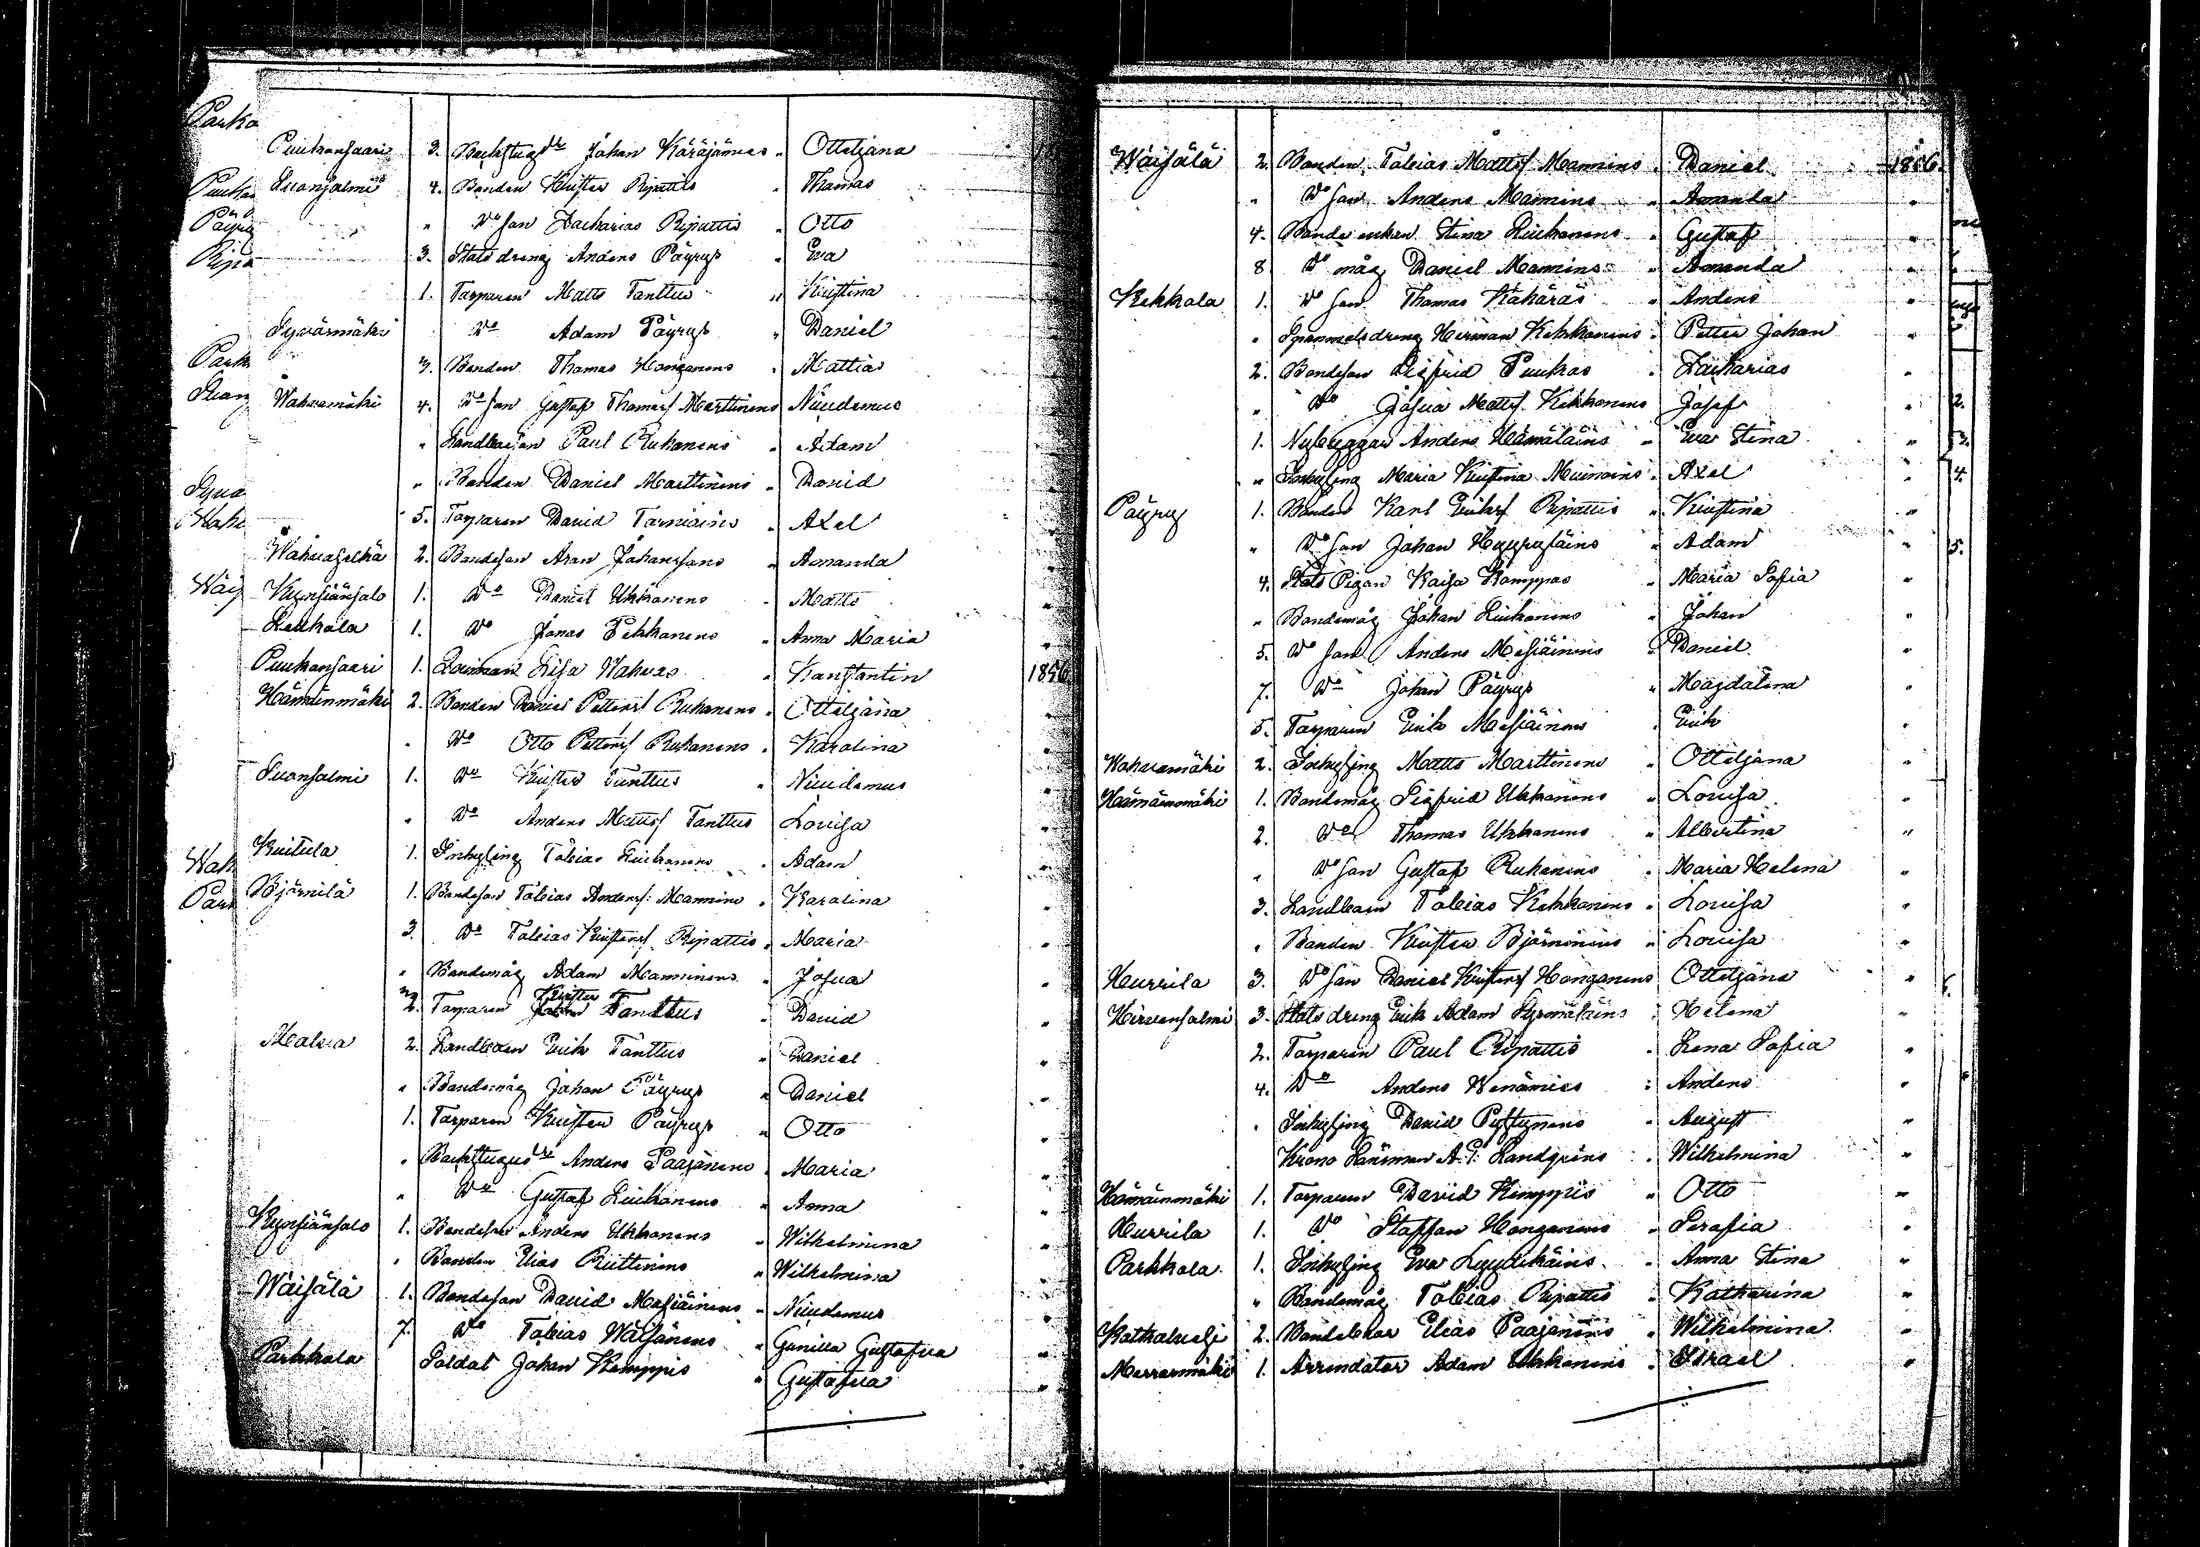 Puukonsaari 3. Backstug Johan Käräjämies Ottiljana
Suonsalmi 4. Bonden Krister Ripattis " Thomas
" Do Son Zacharias Ripattis " Otto
3. Statsdreng Anders Päyrys " Eva
1. Torparen Matts Tanttus " Kristina
Syvärmäki Do Adam Päyrys " Daniel
3. Bonden Thomas Honganens " Mattias
Wahvamäki 4. Do Son Gustaf Thomass Marttinens Nicodemus
" Landbonden Paul Ruhanens " Adam
" Bonden Daniel Marttinens " David
5. Torparen David Tarniains " Axel
Wahvaselkä 2. Bondeson Aron Johanssons " Amanda
Kynsiänsalo 1. Do Daniel Ukkonens " Matts
Laukala 1. Do Jonas Pekkanens " Anna Maria
Puukonsaari 1. Qvinnan Lisa Wahvas " Konstantin 1856
Hämäinmäki 2. Bonden Daniel Petters Ruhanens " Ottiljana
" Do Otto Petters Ruhanens " Karolina
Suonsalmi 1. Do Krister Tanttus " Nicodemus
" Do Anders Mattss Tanttus Lovisa
Kuitula 1. Inhysing Tobias Liukonens " Adam
Björnilä 1. Bondeson Tobias Anderss: Mannins " Karolina
3. Do Tobias Kristerss Ripattis " Maria
" Bondemåg Adam Manninens " Josua
2. Torparen Krister Tanttus " David
Malva 2. Landbonden Erik Tanttus " Daniel
" Bondemåg Johan Päyrys " Daniel
1. Torparen Krister Päyrys " Otto
" Backstugus Anders Paajanens " Maria
" Do Gustaf Liukonens " Anna
Kynsiänsalo 1. Bondeson Anders Ukkonens " Wilhelmina
" Bonden Elias Riittinens " Wilhelmina
Wäisälä 1. Bondeson David Mäsiäinens " Nicodemus
7. Do Tobias Wäisänens " Gunilla Gustafva
Parkkola Soldat Johan Kemppis " Gustafva
Wäisälä 2. Bonden Tobias Mattss Mannins " Daniel 1856.
" Do Son Anders Mannins " Amanda "
4. Bonde enkan Stina Liukonens " Gustaf "
8 Do måg Daniel Mannins " Amanda "
Kekkola 1. Do Son Thomas Kähäräs " Anders "
" Spannmålsdreng Herman Kekkonens " Petter Johan "
2. Bondeson Sigfrid Puukas " Zacharias "
" Do Josua Mattss Kekkonens Josef "
1. Nybyggar Anders Hämäläins " Eva Stina "
" Inhysing Maria Kristina Muinoins " Axel "
Päyry 1. Bonden Karl Erikss Ripattis " Kristina "
" Do Son Johan Hyyryläins " Adam "
4. Stats Pigan Kaisa Kamppas " Maria Sofia "
" Bondemåg Johan Liukonens " Johan "
5. Do Son Anders Mäsiäinens " Daniel "
7. Do Johan Päyrys " Magdalena "
5. Torparen Erik Mäsiäinens " Erik "
Wahvamäki 2. Inhysing Matts Marttinens " Ottiljana "
Hämäinmäki 1. Bondemåg Sigfrid Ukkonens " Lovisa "
2. Do Thomas Ukkonens " Albertina "
" Do Son Gustaf Ruhanens " Maria Helena "
3. Landbonden Tobias Kekkonens " Lovisa "
" Bonden Krister Björninens " Lovisa "
Hurrila 3. Do Son Daniel Kristerss Honganens Ottiljana "
Hirvensalmi 3. Statsdreng Erik Adam Hyvönläins " Helena "
2. Torparen Paul Ripattis " Lena Sofia "
4. Do Anders Wenämies " Anders "
" Inhysing David Pyltynens " August "
Krono Länsman A. G. Landgréns " Wilhelmina "
Hämäinmäki 1. Torparen David Kemppis " Otto "
Hurrila 1. Do Staffan Honganens " Serafia "
Parkkola 1. Inhysing Eva Lyydikäins " Anna Stina "
" Bondemåg Tobias Ripattis " Katharina "
Kotkatvesi 2. Bondebror Elias Paajanens " Wilhelmina "
Merrasmäki 1. Arrendator Adam Ukkonens " Israel "